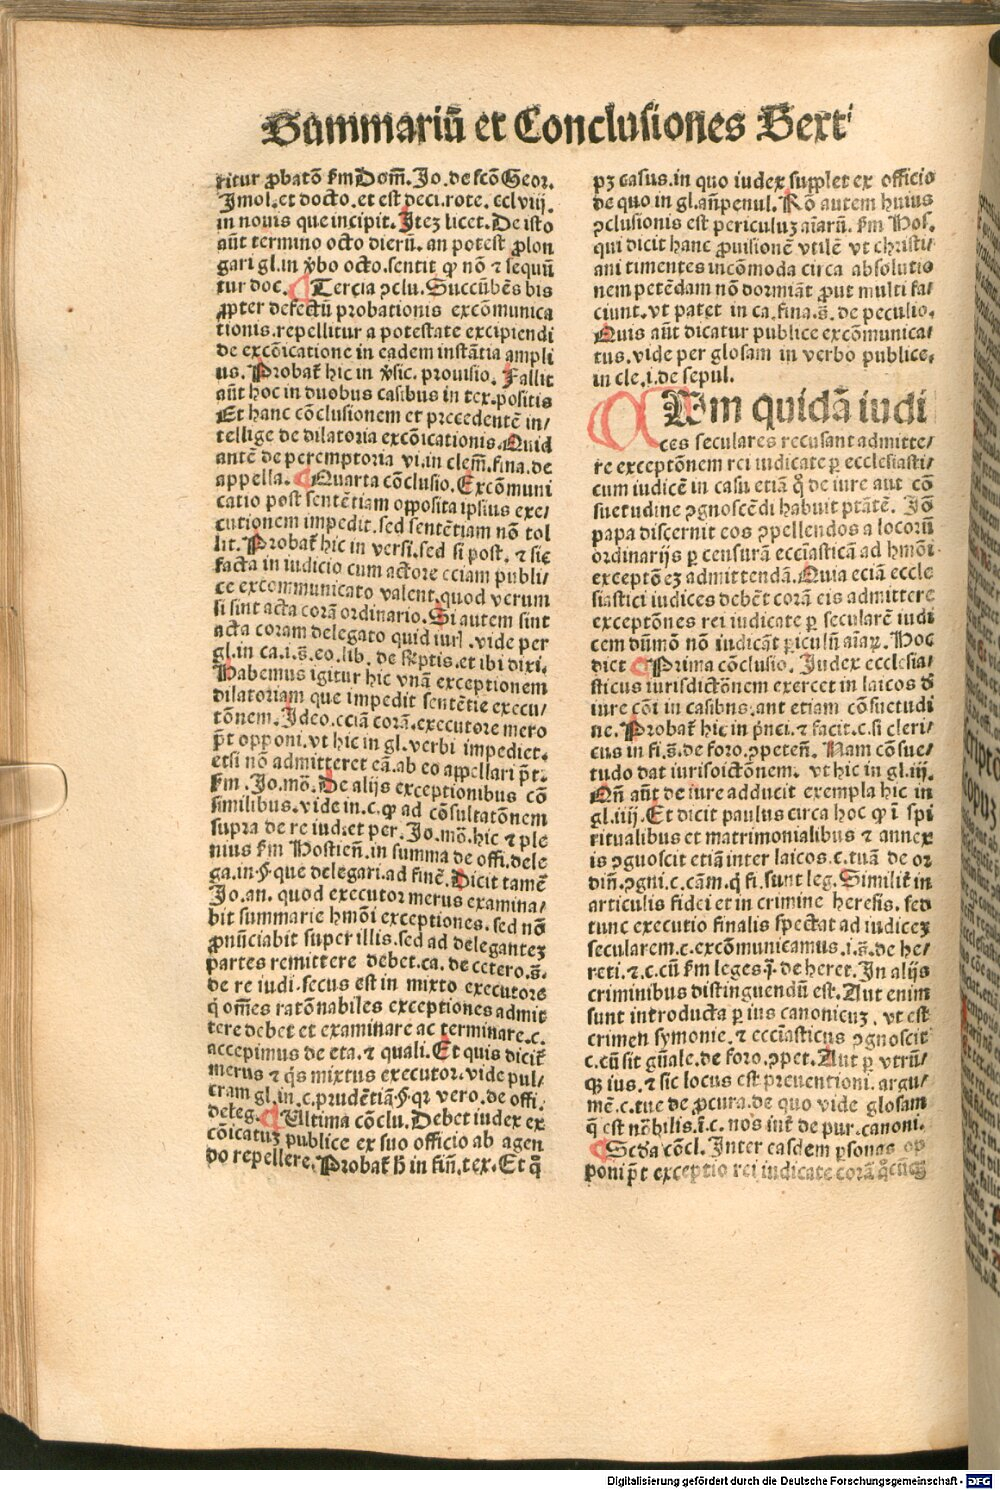 Summariū et Conclusiones Sexti
ritur ꝓbatō ẜm Dom̄. Jo. de scō Geor.
Jmol. et docto. et est deci. rote. cclviij.
in nouis que incipit. Jtez licet. De isto
aūt termino octo dierū. an potest ꝓlon
gari gl. in ꝟbo octo. sentit ꝙ nō ⁊ sequū
tur doc. ¶ Tercia ꝯclu. Succūbēs bis
ꝓpter defectū probationis excōmunica
tionis. repellitur a potestate excipiendi
de excōicatione in eadem instātia ampli
us. Probat̄ hic in ꝟsic. prouisio. Fallit
aūt hoc in duobus casibus in tex. positis
Et hanc cōclusionem et precedentē in/
tellige de dilatoria excōicationis. Quid
antē de peremptoria vi. in clem̄. fina. de
appella. ¶ Quarta cōclusio. Excōmuni
catio post sentētiam opposita ipsius exe/
cutionem impedit. sed sentētiam nō tol
lit. Probat̄ hic in versi. sed si post. ⁊ sic
facta in iudicio cum actore eciam publi/
ce excommunicato valent. quod verum
si sint acta corā ordinario. Si autem sint
acta coram delegato quid iurꝭ. vide per
gl. in ca. i. s̄. eo. lib. de rescriptis. et ibi dixi.
Habemus igitur hic vnā exceptionem
dilatoriam que impedit sentētie execu/
tōnem. Jdeo. eciā corā. executore mero
p̄t opponi. vt hic in gl. verbi impediet.
etsi nō admitteret eā. ab eo appellari p̄t.
ẜm. Jo. mō. De alijs exceptionibus cō
similibus. vide in. c. ꝙ ad cōsultatōnem
supra de re iud. et per. Jo. mō. hic ⁊ ple
nius ẜm Hostien̄. in summa de offi. dele
ga. in. §. que delegari. ad finē. Dicit tamē
Jo. an. quod executor merus examina/
bit summarie hmōi exceptiones. sed nō
ꝓnūciabit super illis. sed ad delegantez
partes remittere debet. ca. de cetero. s̄.
de re iudi. secus est in mixto executore
q̇ om̄es ratōnabiles exceptiones admit
tere debet et examinare ac terminare. c.
accepimus de eta. ⁊ quali. Et quis dicit̄
merus ⁊ q̇s mixtus executor. vide pul/
cram gl. in. c. prudētiā. §. qr vero. de offi.
deleg. ¶ Ultima cōclu. Debet iudex ex
cōicatuz publice ex suo officio ab agen
do repellere. Probat̄ h̄ in fin̄. tex. Et q̄
pꝫ casus. in quo iudex supplet ex officio
de quo in gl. an̄penul. Rō autem huius
ꝯclusionis est periculuz aīarū. ẜm Hos.
qui dicit hanc ꝓuisionē vtilē vt christi/
ani timentes incōmoda circa absolutio
nem petēdam nō dormiāt ꝓut multi fa/
ciunt. vt patet in ca. fina. s̄. de peculio.
Quis aūt dicatur publice excōmunica/
tus. vide per glosam in verbo publice.
in cle. i. de sepul.
CUm quidā iudi
ces seculares recusant admitte/
re exceptōnem rei iudicate ꝑ ecclesiasti/
cum iudicē in casu etiā q̊ de iure aut cō
suetudine ꝯgnoscēdi habuit ptātē. Jō
papa discernit eos ꝯpellendos a locorū
ordinarijs ꝑ censurā ecclīasticā ad hmōi
exceptōeꝫ admittendā. Quia eciā eccle
siastici iudices debēt corā eis admittere
exceptōnes rei iudicate ꝑ secularē iudi
cem dūmō nō iudicāt ꝑiculū aīaꝝ. Hoc
dicit ¶ Prima cōclusio. Judex ecclesia/
sticus iurisdictōnem exercet in laicos d̄
iure cōi in casibus. ant etiam cōsuetudi
ne. Probat̄ hic in prīnci. ⁊ facit. c. si cleri/
cus in fi. s̄. de foro. ꝯpeten̄. Nam cōsue/
tudo dat iurisdictōnem. vt hic in gl. iij.
Qn̄ aūt de iure adducit exempla hic in
gl. iiij. Et dicit paulus circa hoc ꝙ ī spi
ritualibus et matrimonialibus ⁊ annex
is ꝯgnoscit etiā inter laicos. c. tuā de or
din̄. ꝯgni. c. cām. q̇ fi. sunt leg. Similit̄ in
articulis fidei et in crimine heresis. sed
tunc executio finalis spectat ad iudicez
secularem. c. excōmunicamus. i. s̄. de he/
reti. ⁊. c. cū ẜm leges. de heret. In alijs
criminibus distinguendū est. Aut enim
sunt introducta ꝑ ius canonicuz. vt est
crimen symonie. ⁊ ecclīasticus ꝯgnoscit
c. cū sit gn̄ale. de foro. ꝯpet. Aut ꝑ vtrū/
qꝫ ius. ⁊ sic locus est preuentioni. argu/
mē. c. tue de ꝓcura. de quo vide glosam
q̄ est nōbilis. ī. c. nos int̄ de pur. canoni.
¶ Scd̄a cōcl. Inter easdem ꝑsonas op
poni p̄t exceptio rei iudicate corā
Digitalisierung gefördert durch die Deutsche Forschungsgemeinschaft - DFG